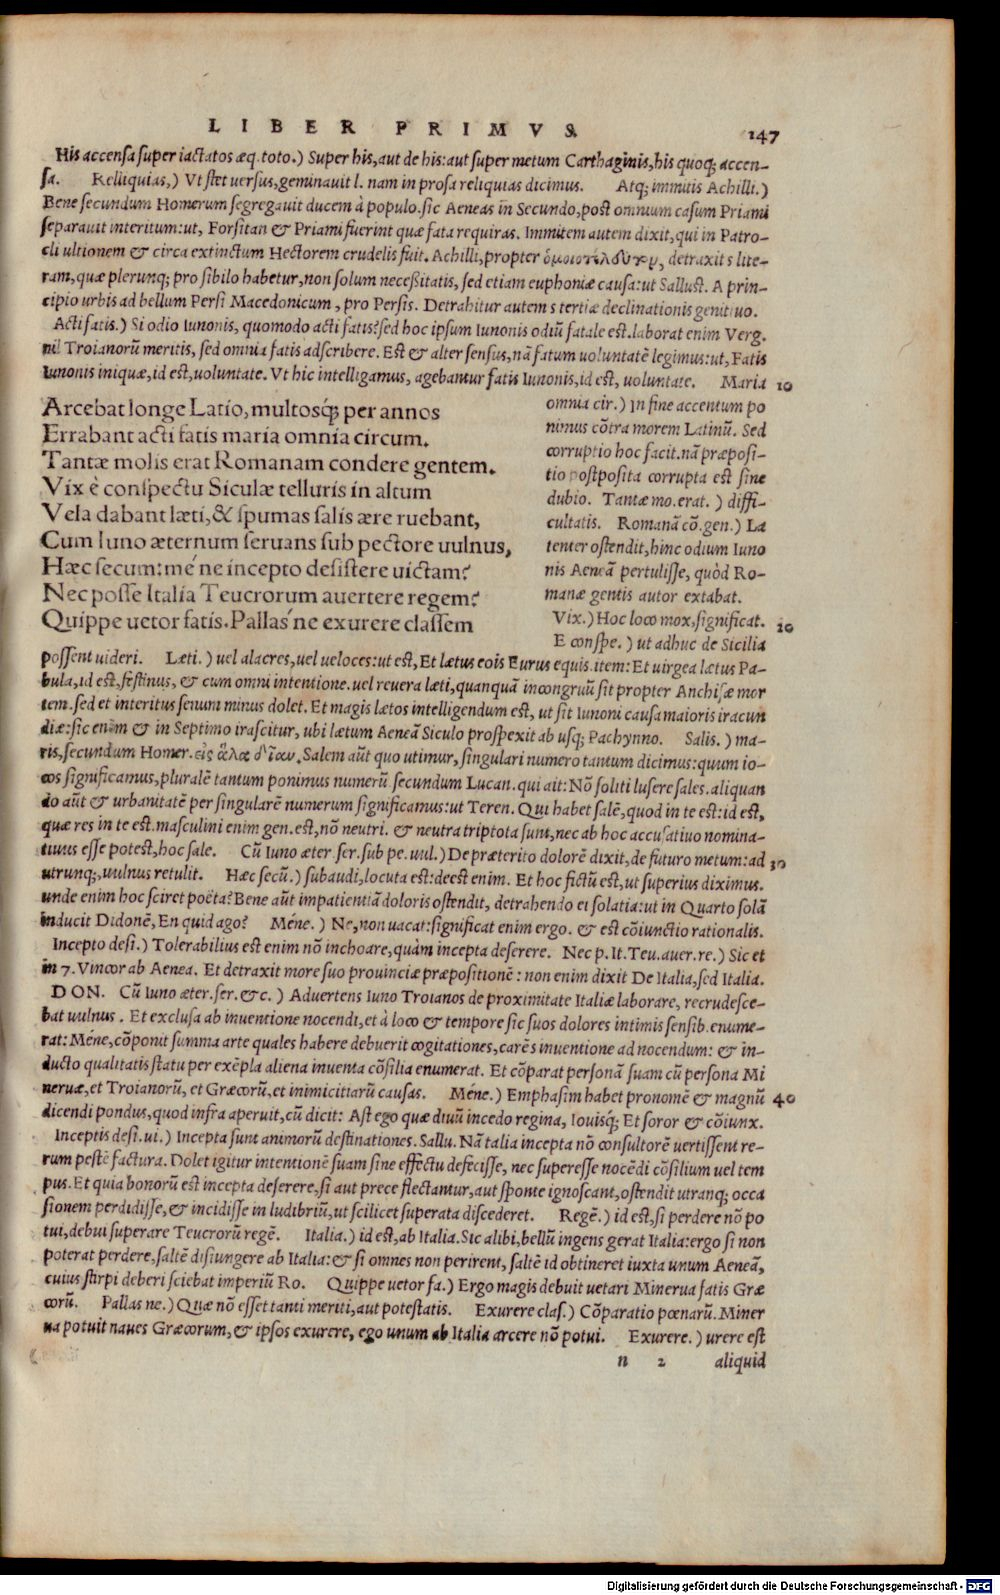 LIBER PRIMVS 147
His accensa super iactatos æq. toto.) Super his, aut de his: aut super metum Carthaginis, his quoq; accen-
sa. Relliquias,) Vt stet uersus, geminauit l. nam in prosa reliquias dicimus. Atq; immitis Achilli.)
Bene secundum Homerum segregauit ducem à populo. sic Aeneas in Secundo, post omnium casum Priami
separauit interitum: ut, Forsitan & Priami fuerint quæ fata requiras. Immitem autem dixit, qui in Patro-
cli ultionem & circa extinctum Hectorem crudelis fuit. Achilli, propter detraxit s lite-
ram, quæ plerunq; pro sibilo habetur, non solum necessitatis, sed etiam euphoniæ causa: ut Sallust. A prin-
cipio urbis ad bellum Persi Macedonicum, pro Persis. Detrahitur autem s tertiæ declinationis genitiuo.
Acti fatis.) Si odio Iunonis, quomodo acti fatis? sed hoc ipsum Iunonis odiũ fatale est. laborat enim Verg.
nil Troianorũ meritis, sed omnia fatis adscribere. Est & alter sensus, nã fatum uoluntatẽ legimus: ut, Fatis
Iunonis iniquæ, id est, uoluntate. Vt hic intelligamus, agebantur fatis Iunonis, id est, uoluntate. Maria 10
Arcebat longe Latio, multosq́; per annos
Errabant acti fatis maria omnia circum.
Tantæ molis erat Romanam condere gentem.
Vix è conspectu Siculæ telluris in altum
Vela dabant læti, & spumas salis ære ruebant,
Cum Iuno æternum seruans sub pectore uulnus,
Hæc secum: mé ne incepto desistere uictam?
Nec posse Italia Teucrorum auertere regem?
Quippe uetor fatis. Pallas ne exurere classem
omnia cir.) In fine accentum po
nimus cõtra morem Latinũ. Sed
corruptio hoc facit. nã præposi-
tio postposita corrupta est sine
dubio. Tantæ mo. erat.) diffi-
cultatis. Romanã cõ. gen.) La
tenter ostendit, hinc odium Iuno
nis Aeneã pertulisse, quòd Ro-
manæ gentis autor extabat.
Vix.) Hoc loco mox, significat. 20
E conspe.) ut adhuc de Sicilia
possent uideri. Læti.) uel alacres, uel ueloces: ut est, Et lætus eois Eurus equis. item: Et uirgea lætus Pa-
bula, id est, festinus, & cum omni intentione. uel reuera læti, quanquã incongruũ sit propter Anchisæ mor
tem. sed et interitus senum minus dolet. Et magis lætos intelligendum est, ut sit Iunoni causa maioris iracun
diæ: sic enim & in Septimo irascitur, ubi lætum Aeneã Siculo prospexit ab usq; Pachynno. Salis.) ma-
ris, secundum Homer. εἰς ἅλα δῖαν. Salem aũt quo utimur, singulari numero tantum dicimus: quum io-
cos significamus, pluralẽ tantum ponimus numerũ secundum Lucan. qui ait: Nõ soliti lusere sales. aliquan
do aũt & urbanitatẽ per singularẽ numerum significamus: ut Teren. Qui habet salẽ, quod in te est: id est,
quæ res in te est. masculini enim gen. est, nõ neutri. & neutra triptota sunt, nec ab hoc accusatiuo nomina-
tiuus esse potest, hoc sale. Cũ Iuno æter. ser. sub pe. uul.) De præterito dolorẽ dixit, de futuro metum: ad 30
utrunq;, uulnus retulit. Hæc secũ.) subaudi, locuta est: deest enim. Et hoc fictũ est, ut superius diximus.
unde enim hoc sciret poëta? Bene aũt impatientiã doloris ostendit, detrahendo ei solatia: ut in Quarto solã
inducit Didonẽ, En quid ago? Méne.) Ne, non uacat: significat enim ergo. & est cõiunctio rationalis.
Incepto desi.) Tolerabilius est enim nõ inchoare, quàm incepta deserere. Nec p. It. Teu. auer. re.) Sic et
in 7. Vincor ab Aenea. Et detraxit more suo prouinciæ præpositionẽ: non enim dixit De Italia, sed Italia.
DON. Cũ Iuno æter. ser. &c.) Aduertens Iuno Troianos de proximitate Italiæ laborare, recrudesce-
bat uulnus. Et exclusa ab inuentione nocendi, et à loco & tempore sic suos dolores intimis sensib. enume-
rat: Méne, cõponit summa arte quales habere debuerit cogitationes, carẽs inuentione ad nocendum: & in-
ducto qualitatis statu per exẽpla aliena inuenta cõsilia enumerat. Et cõparat personã suam cũ persona Mi
neruæ, et Troianorũ, et Græcorũ, et inimicitiarũ causas. Méne.) Emphasim habet pronomẽ & magnũ 40
dicendi pondus, quod infra aperuit, cũ dicit: Ast ego quæ diuũ incedo regina, Iouisq́; Et soror & cõiunx.
Inceptis desi. ui.) Incepta sunt animorũ destinationes. Sallu. Nã talia incepta nõ consultorẽ uertissent re-
rum pestẽ factura. Dolet igitur intentionẽ suam sine effectu defecisse, nec superesse nocẽdi cõsilium uel tem
pus. Et quia bonorũ est incepta deserere, si aut prece flectantur, aut sponte ignoscant, ostendit utranq; occa
sionem perdidisse, & incidisse in ludibriũ, ut scilicet superata discederet. Regẽ.) id est, si perdere nõ po
tui, debui superare Teucrorũ regẽ. Italia.) id est, ab Italia. Sic alibi, bellũ ingens gerat Italia: ergo si non
poterat perdere, saltẽ disiungere ab Italia: & si omnes non perirent, saltẽ id obtineret iuxta unum Aeneã,
cuius stirpi deberi sciebat imperiũ Ro. Quippe uetor fa.) Ergo magis debuit uetari Minerua fatis Græ
corũ. Pallas ne.) Quæ nõ esset tanti meriti, aut potestatis. Exurere clas.) Cõparatio pœnarũ. Miner
ua potuit naues Græcorum, & ipsos exurere, ego unum ab Italia arcere nõ potui. Exurere.) urere est
n 2 aliquid
Digitalisierung gefördert durch die Deutsche Forschungsgemeinschaft - DFG